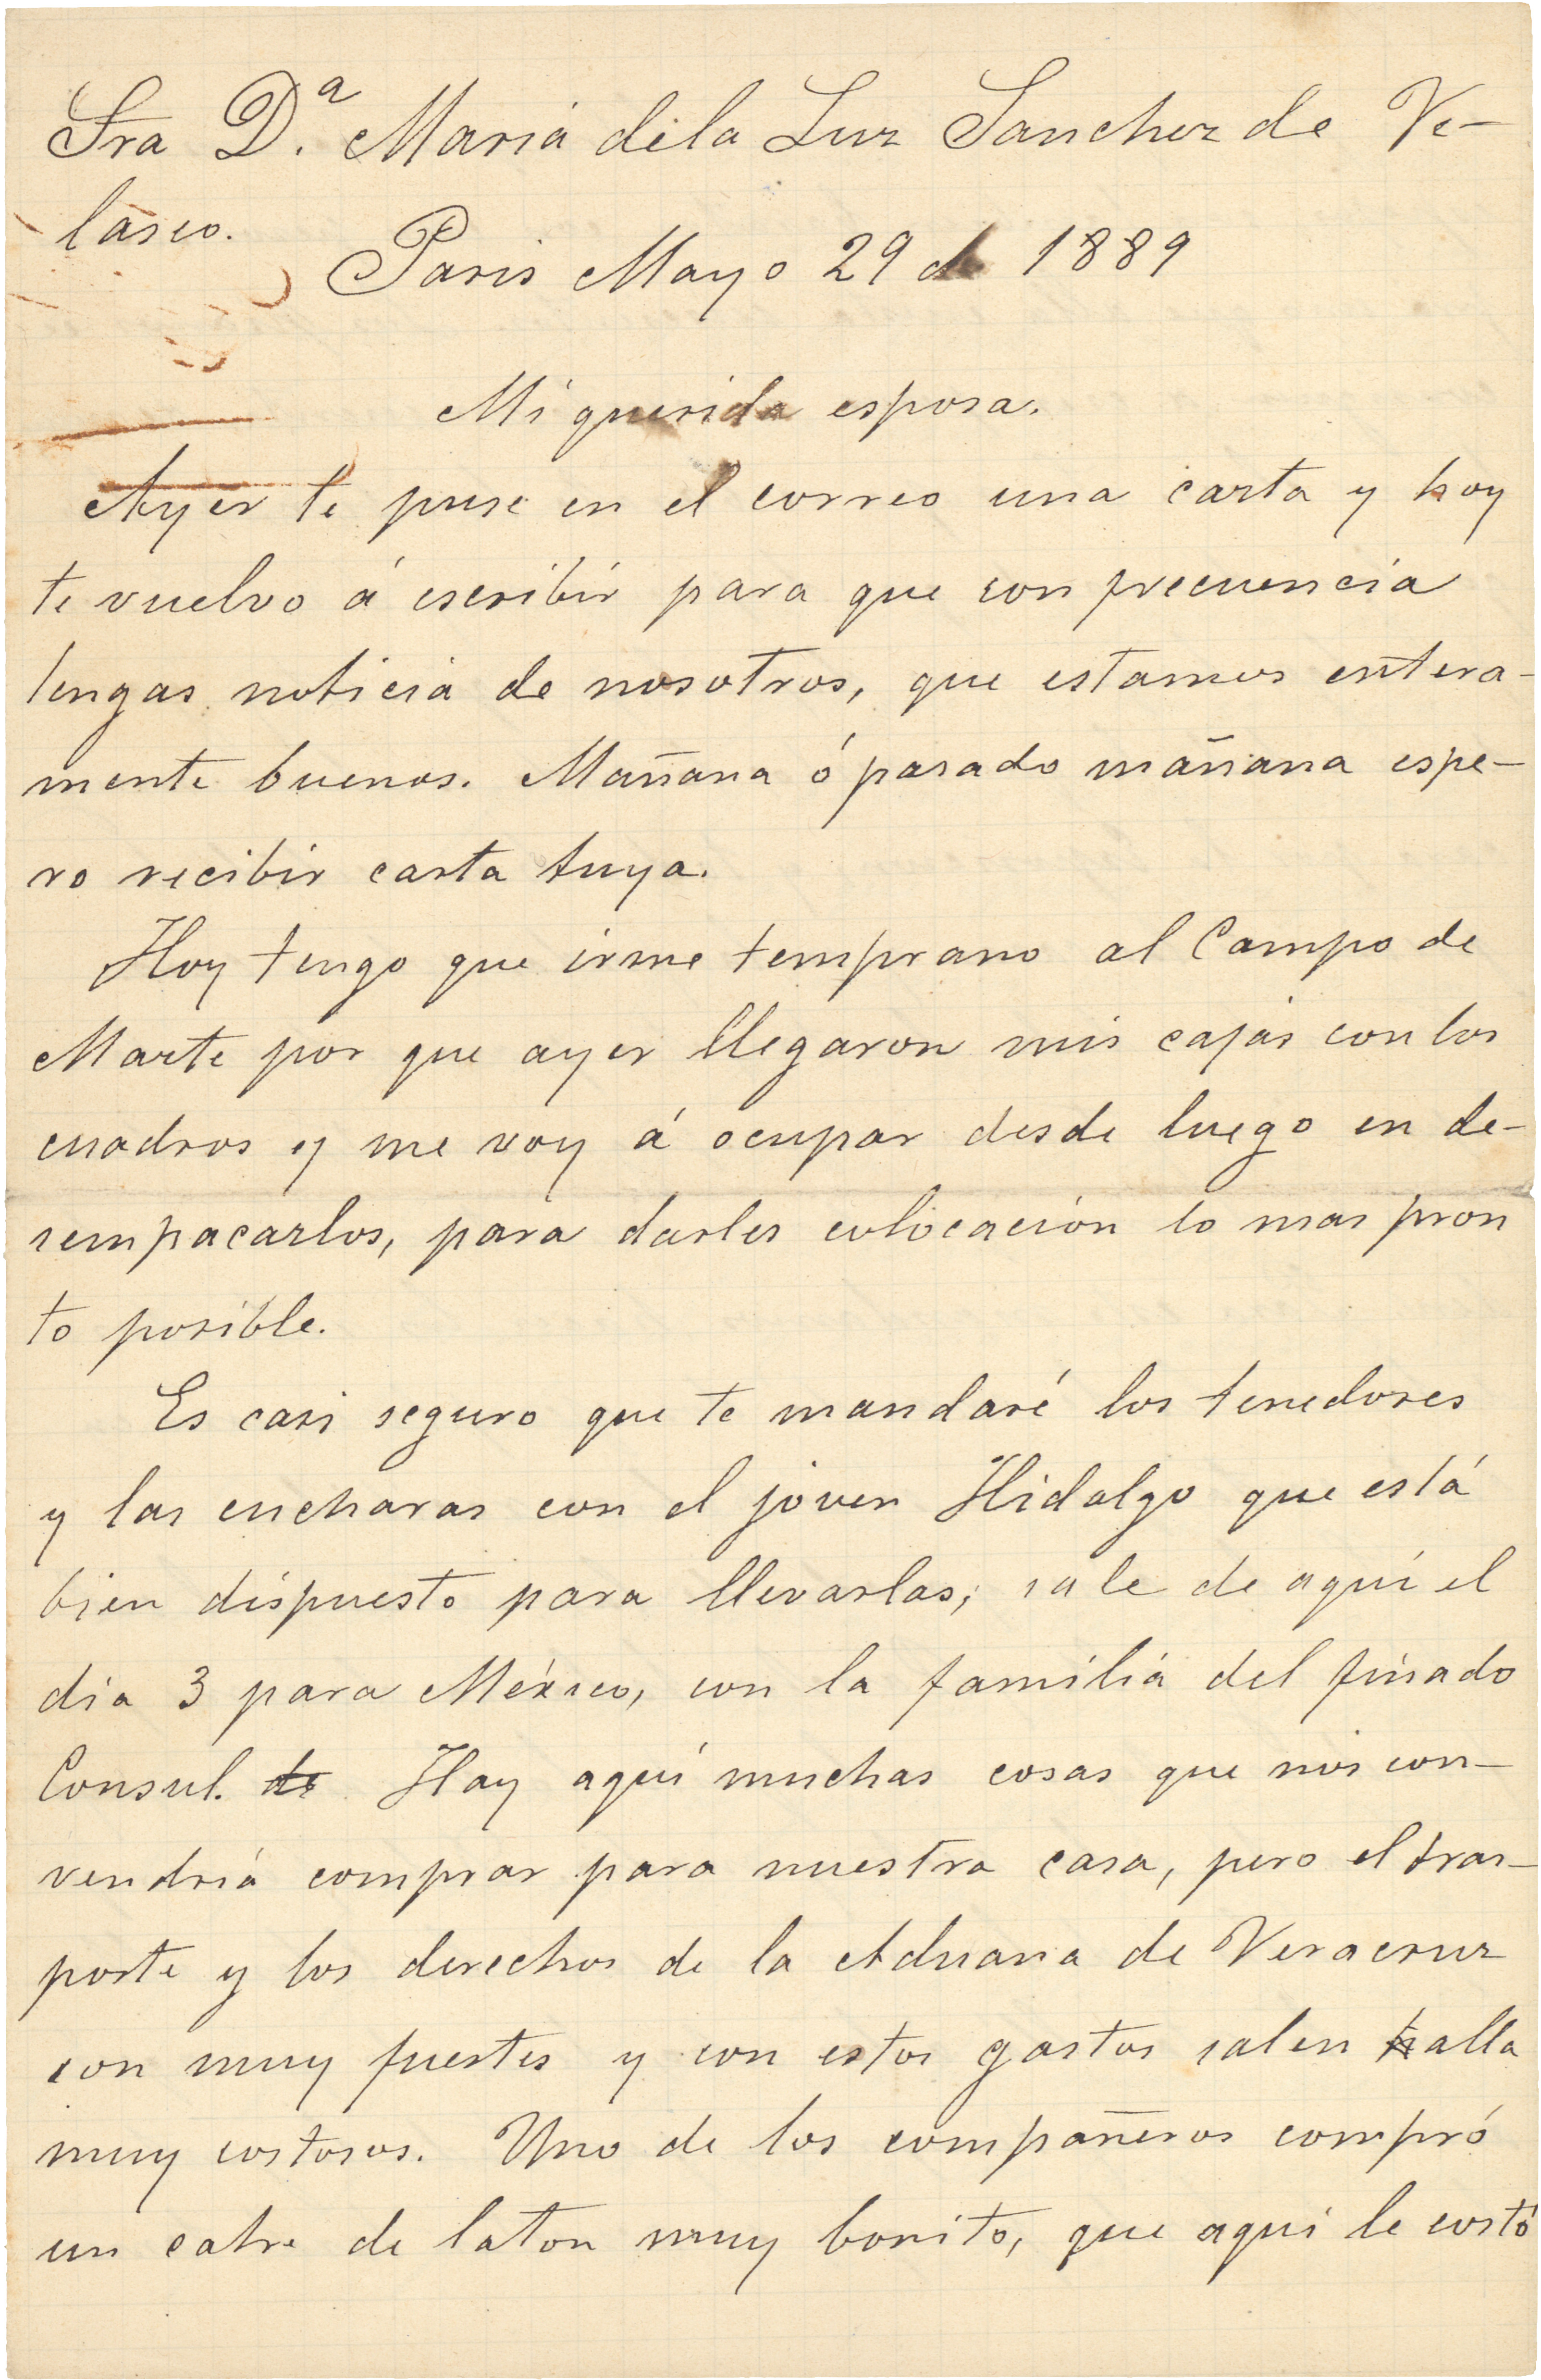 Sra D.ª Maria de la Luz Sanchez de Ve-
lasco.
Paris Mayo 29 de 1889
Mi querida esposa.
Ayer te puse en el correo una carta y hoy
te vuelvo á escribir para que con frecuencia
tengas noticia de nosotros, que estamos entera-
mente buenos. Mañana ó pasado mañana espe-
ro recibir carta tuya.
Hoy tengo que irme temprano al Campo de
Marte por que ayer llegaron mis cajas con los
cuadros y me voy á ocupar desde luego en de-
sempacarlos, para darles colocación lo mas pron
to posible.
Es casi seguro que te mandaré los tenedores
y las cucharas con el joven Hidalgo que está
bien dispuesto para llevarlas; sale de aquí el
dia 3 para México, con la familia del finado
Consul. de Hay aquí muchas cosas que nos con-
vendria comprar para nuestra casa, pero el tras-
porte y los derechos de la Aduana de Veracruz
son muy fuertes y con estos gastos salen halla
muy costosos. Uno de los compañeros compró
un catre de laton muy bonito, que aquí le costó